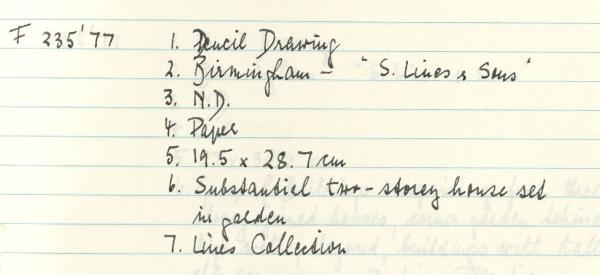 F 235'77 1. Pencil Drawing
2. Birmingham – "S. Lines & Sons"
3. N.D.
4. Paper
5. 19.5 x 28.7 cm
6. Substantial two-storey house set
in garden
7. Lines Collection